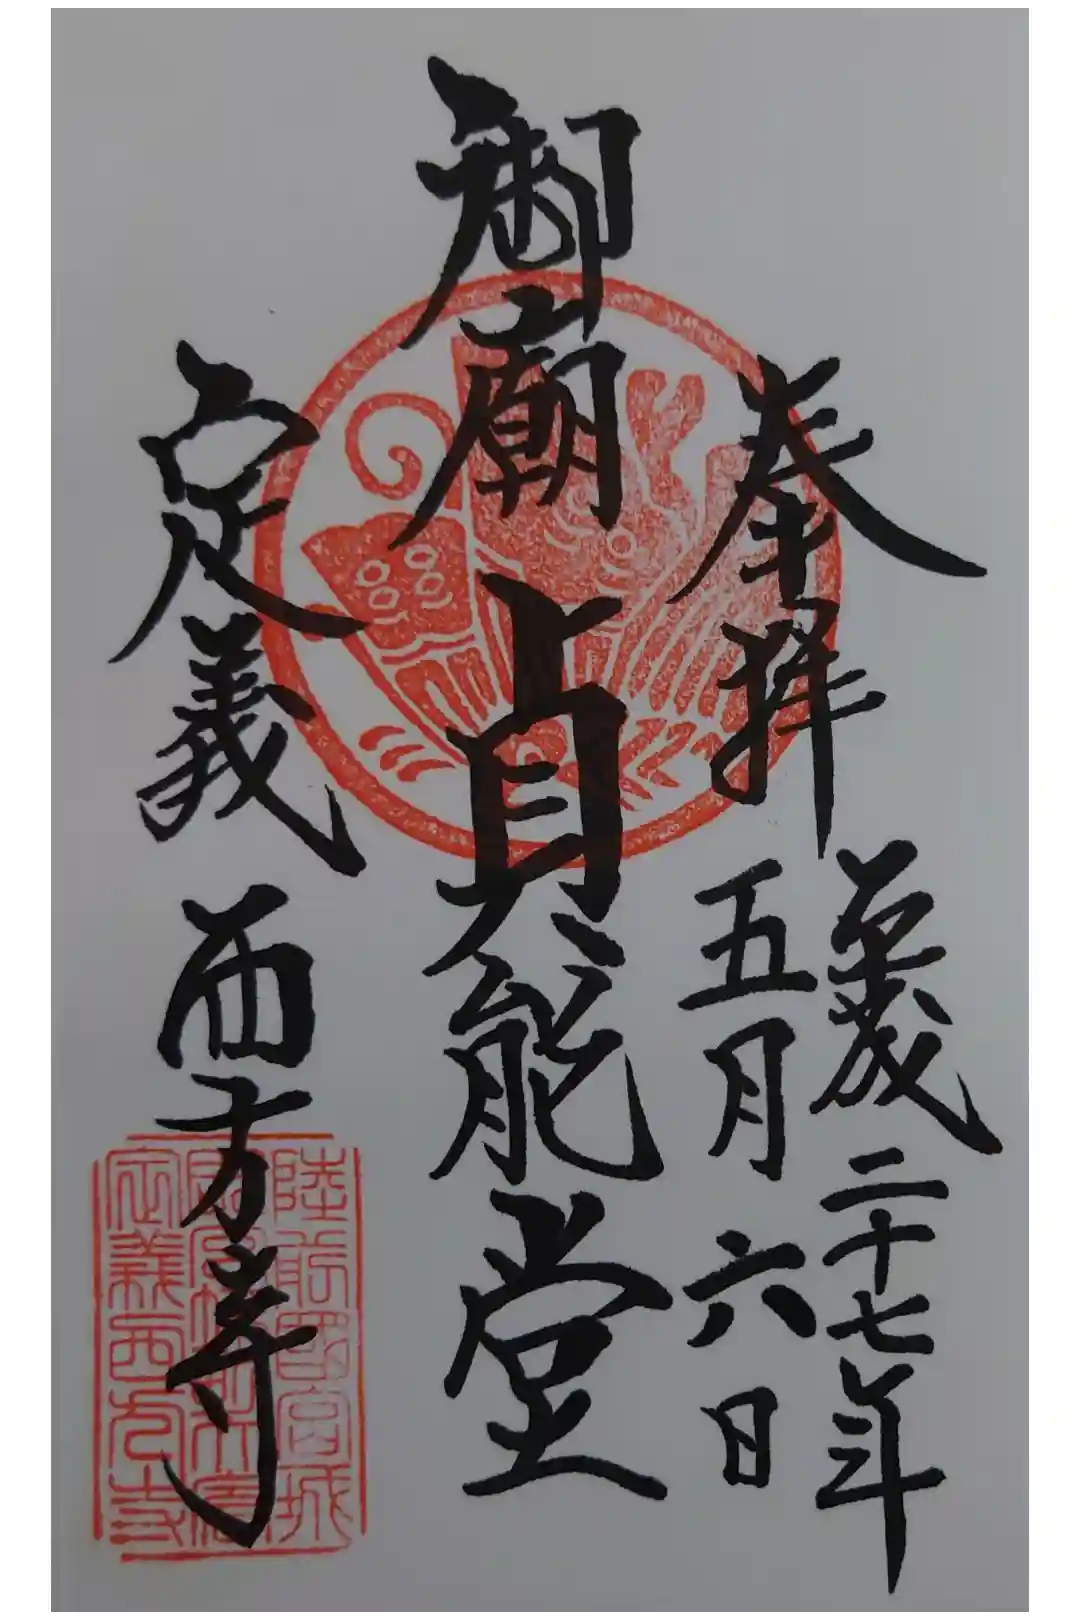 奉拝
平成二十七年
五月六日
御廟貞能堂
定義 西方寺
陸前國宮城
定義西方寺